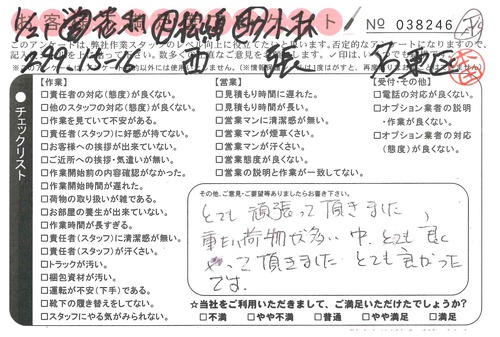 No 038246
このアンケートは、弊社作業スタッフのレベル向上に役立てたいと思います。否定的なアンケートになりますので、
チェックリスト
【作業】
□責任者の対応(態度)が良くない。
□他のスタッフの対応(態度)が良くない。
□作業を見ていて不安がある。
□責任者(スタッフ)に好感が持てない。
□お客様への挨拶が出来ていない。
□ご近所への挨拶・気遣いが無い。
□作業開始前の内容確認がなかった。
□作業開始時間が遅れた。
□荷物の取り扱いが雑である。
□お部屋の養生が出来ていない。
□作業時間が長すぎる。
□責任者(スタッフ)に清潔感が無い。
□責任者(スタッフ)が汗くさい。
□トラックが汚い。
□梱包資材が汚い。
□運転が不安(下手)である。
□靴下の履き替えをしてない。
□スタッフにやる気が感じられない。
【営業】
□見積もり時間に遅れた。
□見積もり時間が長い。
□営業マンに清潔感が無い。
□営業マンが煙草くさい。
□営業マンが汗くさい。
□営業態度が良くない。
□営業の説明と作業が一致してない。
【受付・その他】
□電話の対応が良くない。
□オプション業者の説明
・作業が良くない。
□オプション業者の対応
(態度)が良くない。
その他、ご意見・ご要望等ありましたらお書き下さい。
とても頑張って頂きました、
重たい荷物が多い中、とても良く
やって頂きました とても良かった
です。
☆当社をご利用いただきまして、ご満足いただけたでしょうか?
□不満 □やや不満 □普通 □やや満足 □満足